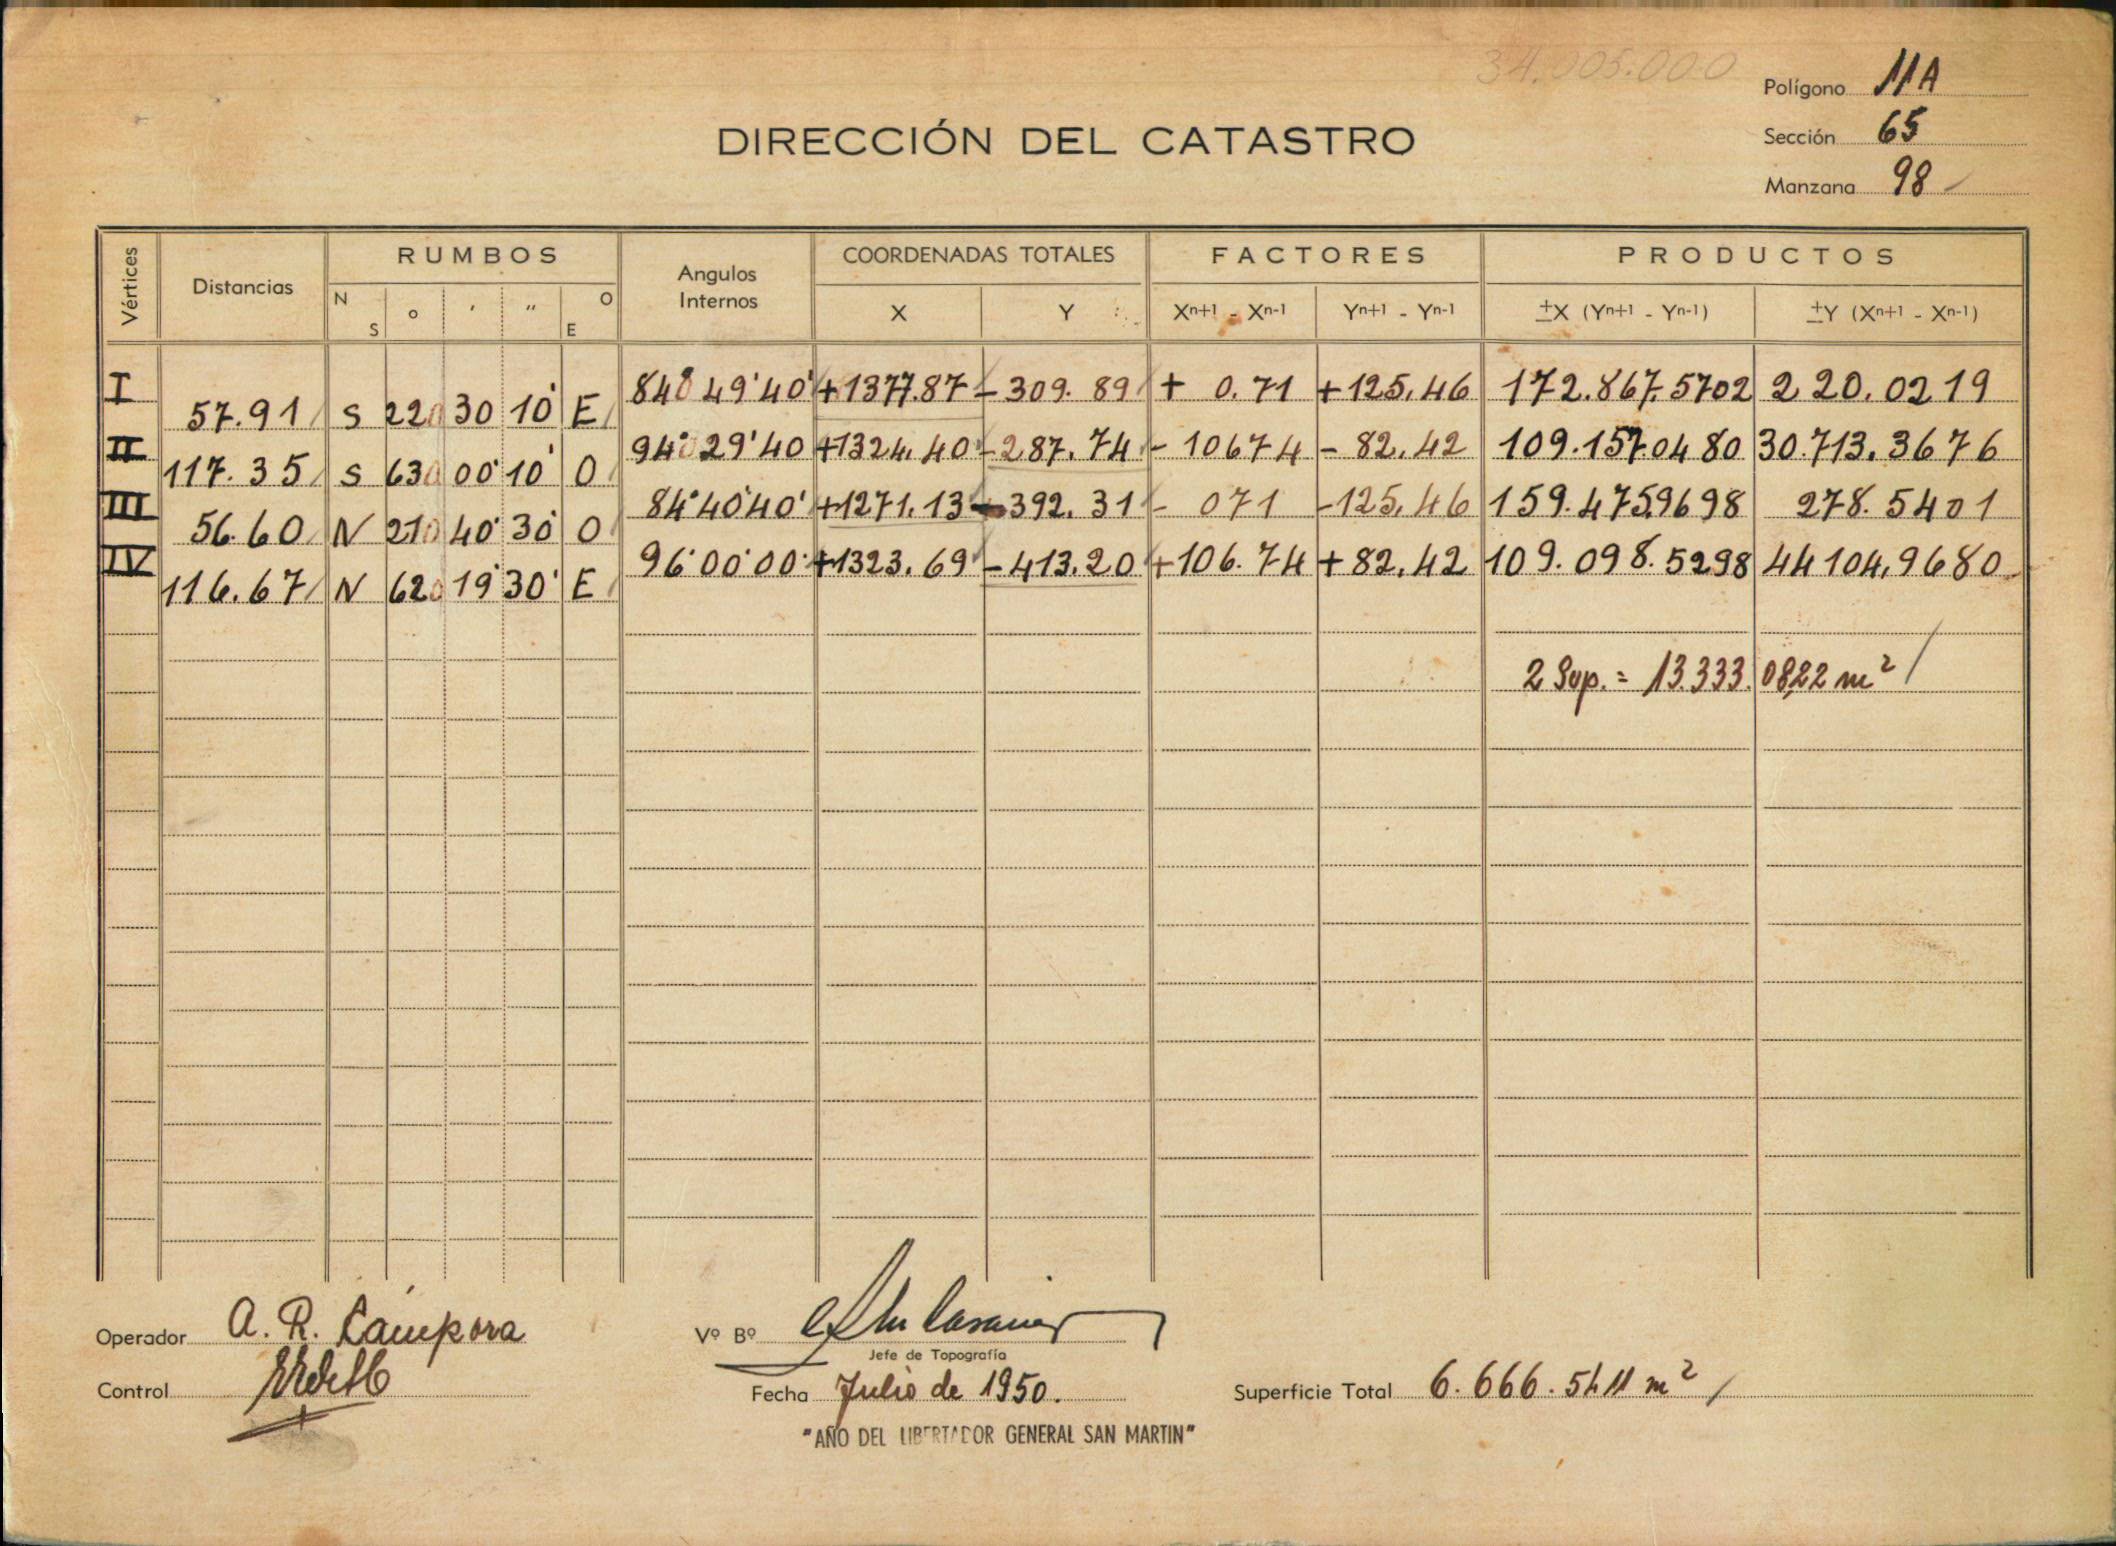 34.005.000
Polígono 11A
DIRECCIÓN DEL CATASTRO
Sección 65
Manzana 98
Vértices Distancias RUMBOS Angulos Internos COORDENADAS TOTALES FACTORES PRODUCTOS
N S ° ' " O E X Y Xn+1 - Xn-1 Yn+1 - Yn-1 ±X (Yn+1 - Yn-1) ±Y (Xn+1 - Xn-1)
I 84° 49' 40' +1377.87 - 309.89 + 0.71 +125.46 172.867.5702 220.0219
57.91 S 22° 30 10' E
II 94° 29' 40 +1324.40 - 287.74 - 10674 - 82.42 109.157.0480 30.713.3676
117.35 S 63° 00' 10' O
III 84° 40' 40' +1271.13 - 392.31 - 071 -125.46 159.475.9698 278.5401
56.60 N 21° 40' 30' O
IV 96° 00' 00' +1323.69 - 413.20 +106.74 +82.42 109.098.5298 44104,9680
116.67 N 62° 19' 30' E
2 Sup. = 13.333.0822 m²
Operador A. R. Cámpora
Vº Bº
Jefe de Topografía
Control
Fecha Julio de 1950.
Superficie Total 6.666.5411 m²
"AÑO DEL LIBERTADOR GENERAL SAN MARTIN"